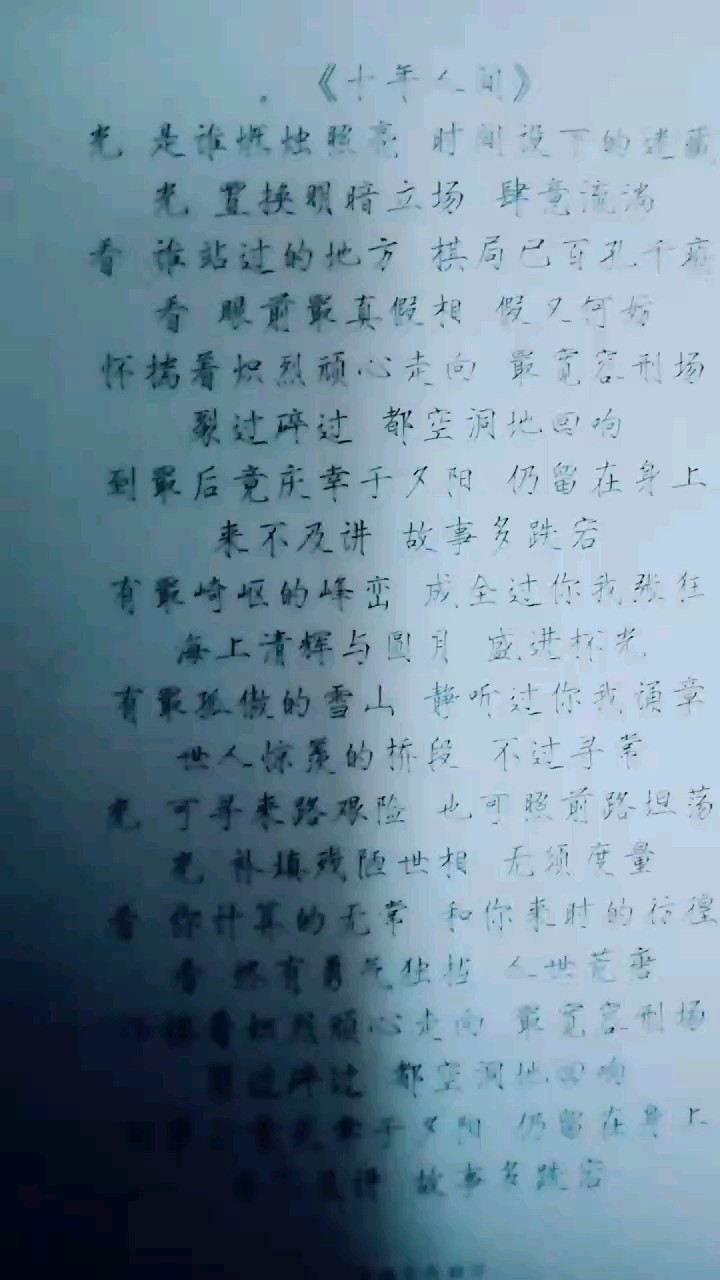 《十年人间》
光 是谁燃烛照亮 时间设下的迷藏
光 置换明暗立场 肆意流淌
看 谁站过的地方 棋局已百孔千疮
看 眼前最真假相 假又何妨
怀揣着炽烈顽心走向 最宽容刑场
裂过碎过 都空洞地回响
到最后竟庆幸于夕阳 仍留在身上
来不及讲 故事多跌宕
有最崎岖的峰峦 成全过你我张狂
海上清辉与圆月 盛进杯光
有最孤傲的雪山 静听过你我诵章
世人惊羡的桥段 不过寻常
光 可寻来路艰险 也可照前路坦荡
光 补填残陋世相 无须度量
看 你计算的无常 和你来时的彷徨
看 然有勇气独挡 人世荒唐
怀揣着炽烈顽心走向 最宽容刑场
裂过碎过 都空洞地回响
幸于夕阳 仍留在身上
及讲 故事多跌宕